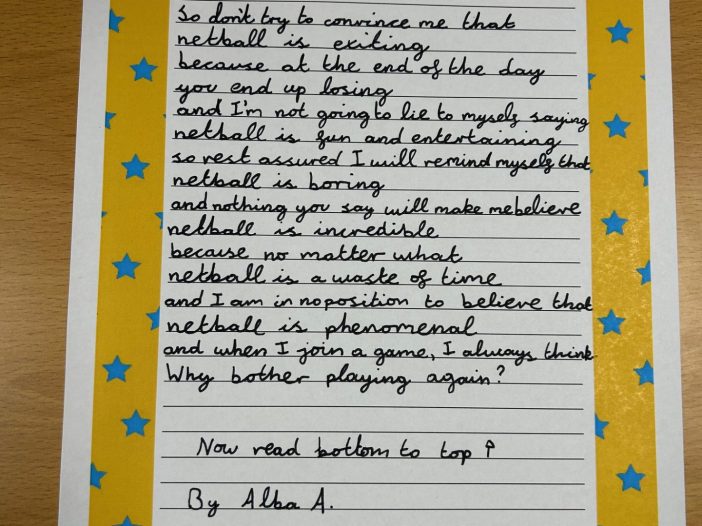 So don't try to convince me that
netball is exiting
because at the end of the day
you end up losing
and I'm not going to lie to myself saying
netball is fun and entertaining
so rest assured I will remind myself that
netball is boring
and nothing you say will make me believe
netball is incredible
because no matter what
netball is a waste of time
and I am in no position to believe that
netball is phenomenal
and when I join a game, I always think
Why bother playing again?
Now read bottom to top ↑
By Alba A.